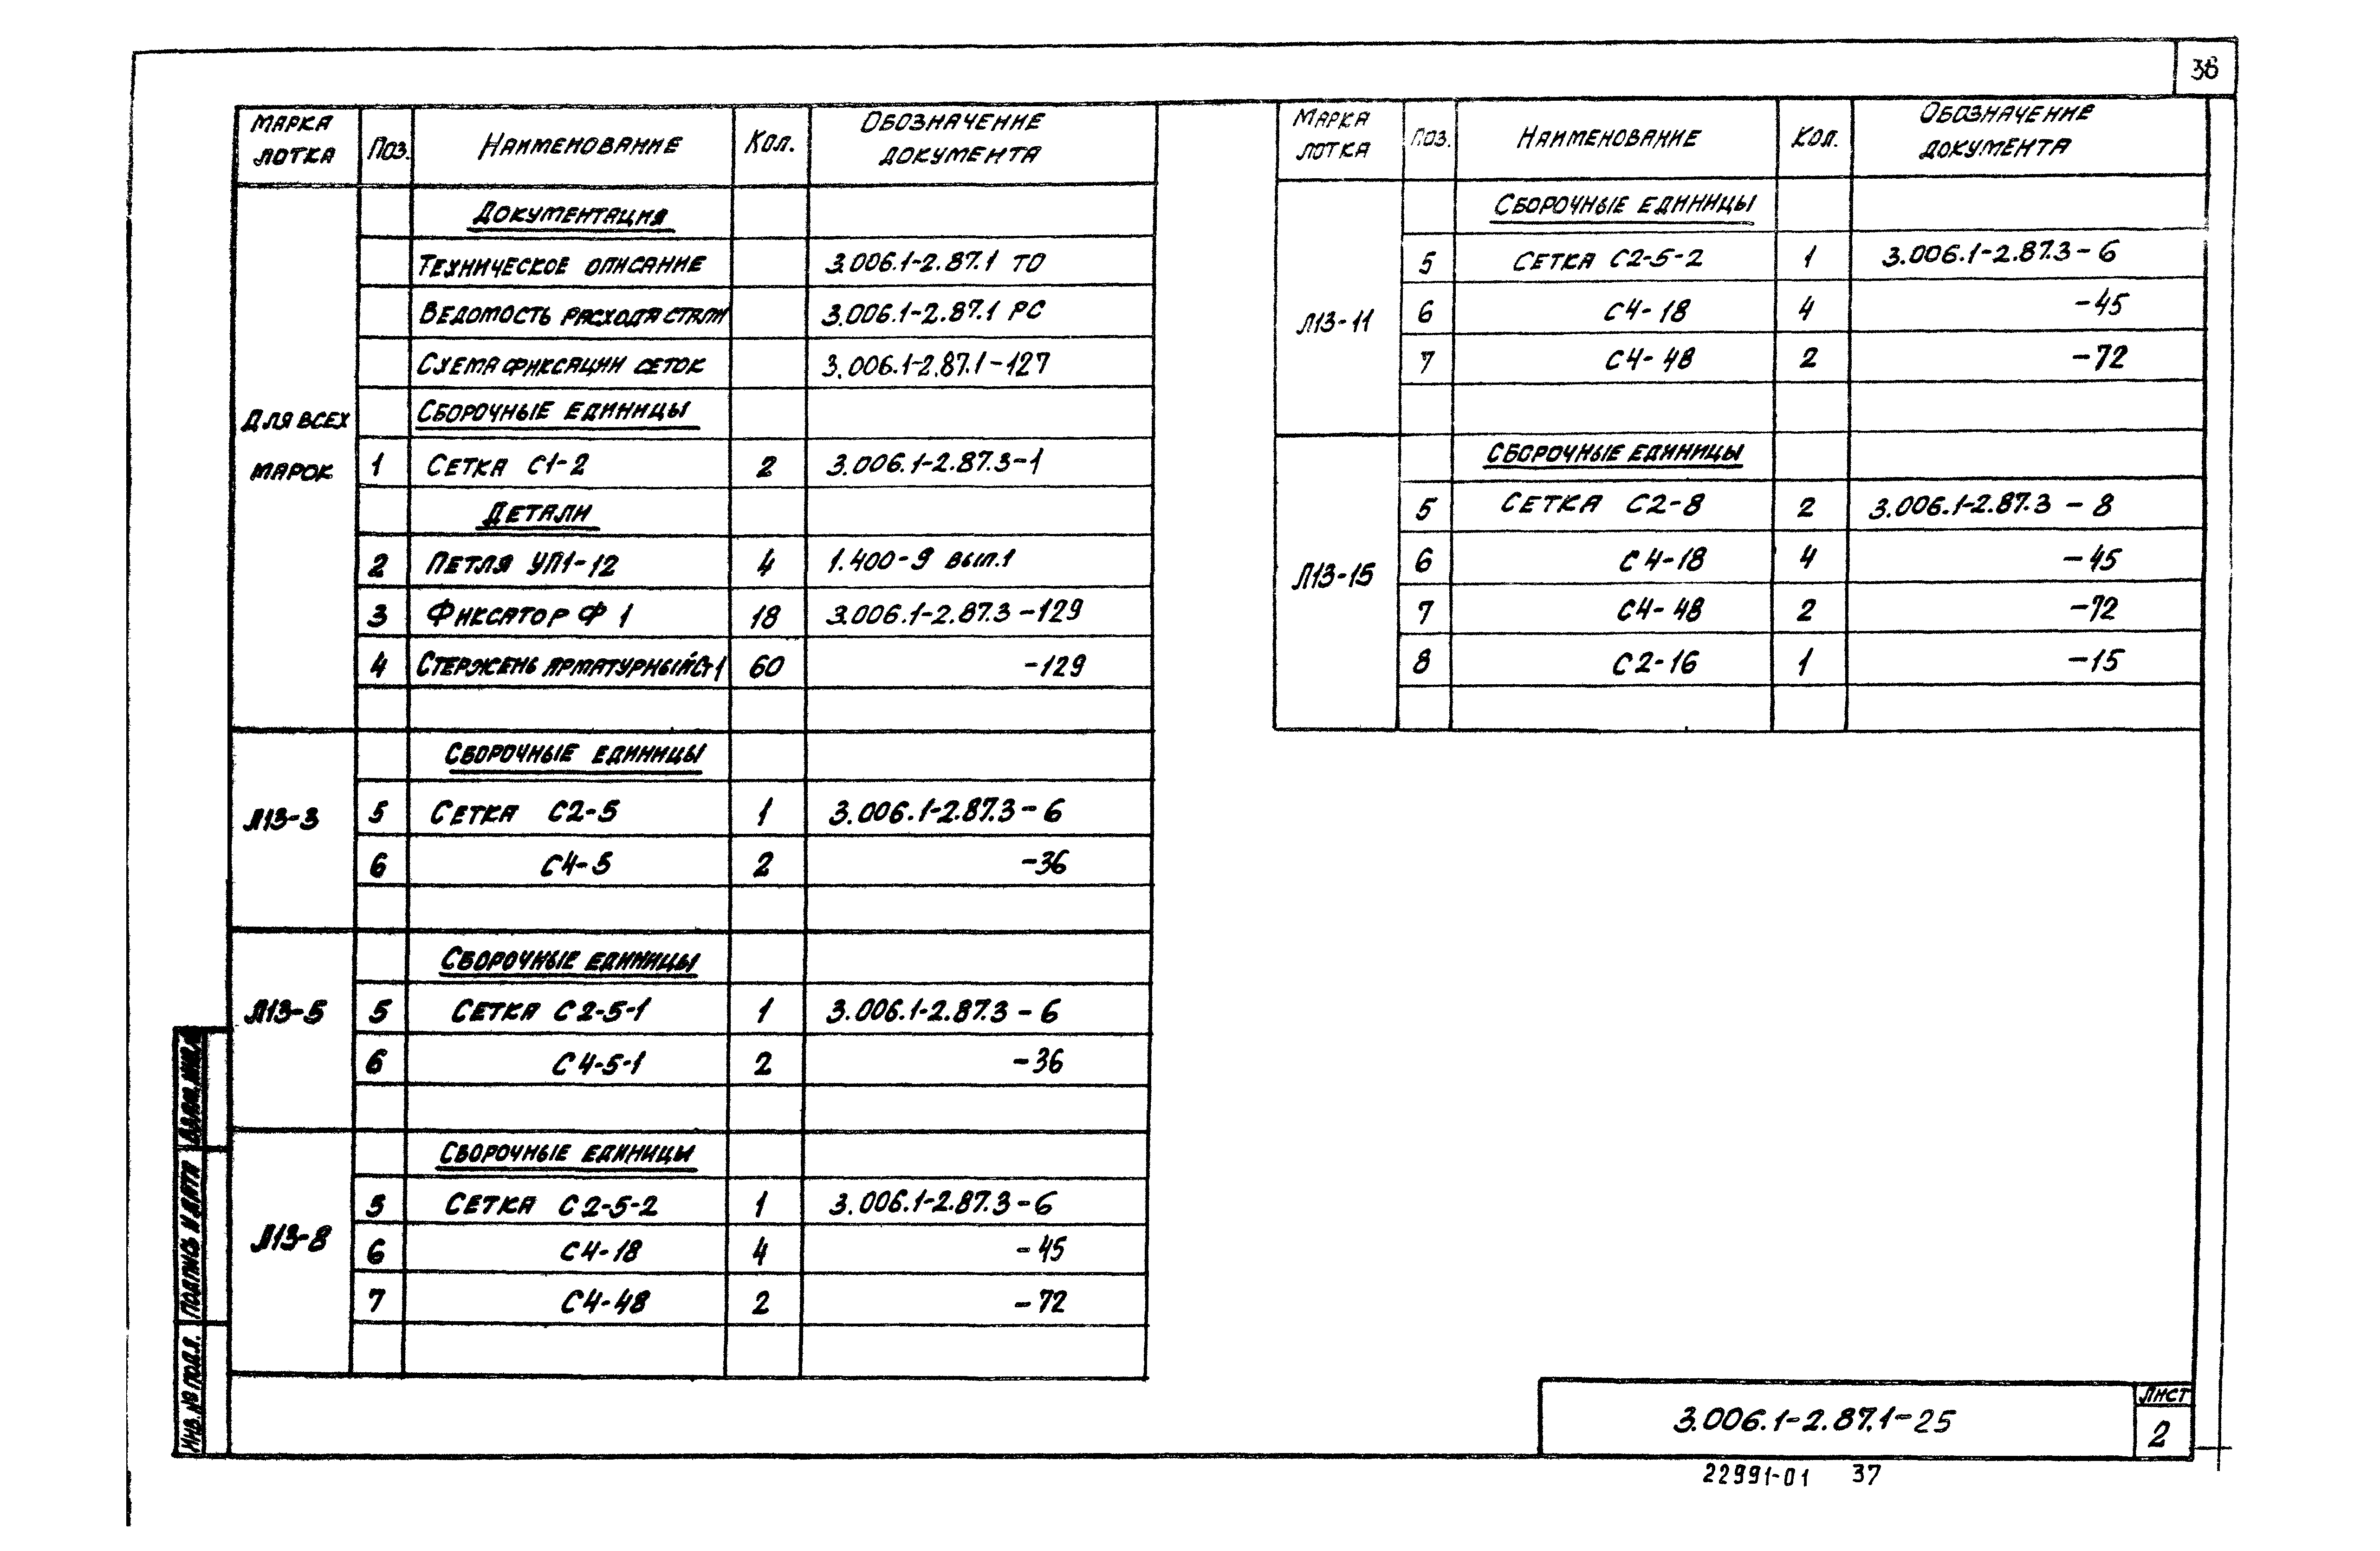 36
Марка лотка Поз. Наименование Кол. Обозначение документа
Для всех марок
Документация
Техническое описание 3.006.1-2.87.1 ТО
Ведомость расхода стали 3.006.1-2.87.1 РС
Схема фиксации сеток 3.006.1-2.87.1-127
Сборочные единицы
1 Сетка С1-2 2 3.006.1-2.87.3-1
Детали
2 Петля УП1-12 4 1.400-9 вып.1
3 Фиксатор Ф 1 18 3.006.1-2.87.3-129
4 Стержень арматурный Ст1 60 -129
Л13-3
Сборочные единицы
5 Сетка С2-5 1 3.006.1-2.87.3-6
6 С4-5 2 -36
Л13-5
Сборочные единицы
5 Сетка С2-5-1 1 3.006.1-2.87.3-6
6 С4-5-1 2 -36
Л13-8
Сборочные единицы
5 Сетка С2-5-2 1 3.006.1-2.87.3-6
6 С4-18 4 -45
7 С4-48 2 -72
Марка лотка Поз. Наименование Кол. Обозначение документа
Л13-11
Сборочные единицы
5 Сетка С2-5-2 1 3.006.1-2.87.3-6
6 С4-18 4 -45
7 С4-48 2 -72
Л13-15
Сборочные единицы
5 Сетка С2-8 2 3.006.1-2.87.3-8
6 С4-18 4 -45
7 С4-48 2 -72
8 С2-16 1 -15
Инв. № подл. Подпись и дата Взам. инв. №
3.006.1-2.87.1-25
Лист
2
22991-01 37